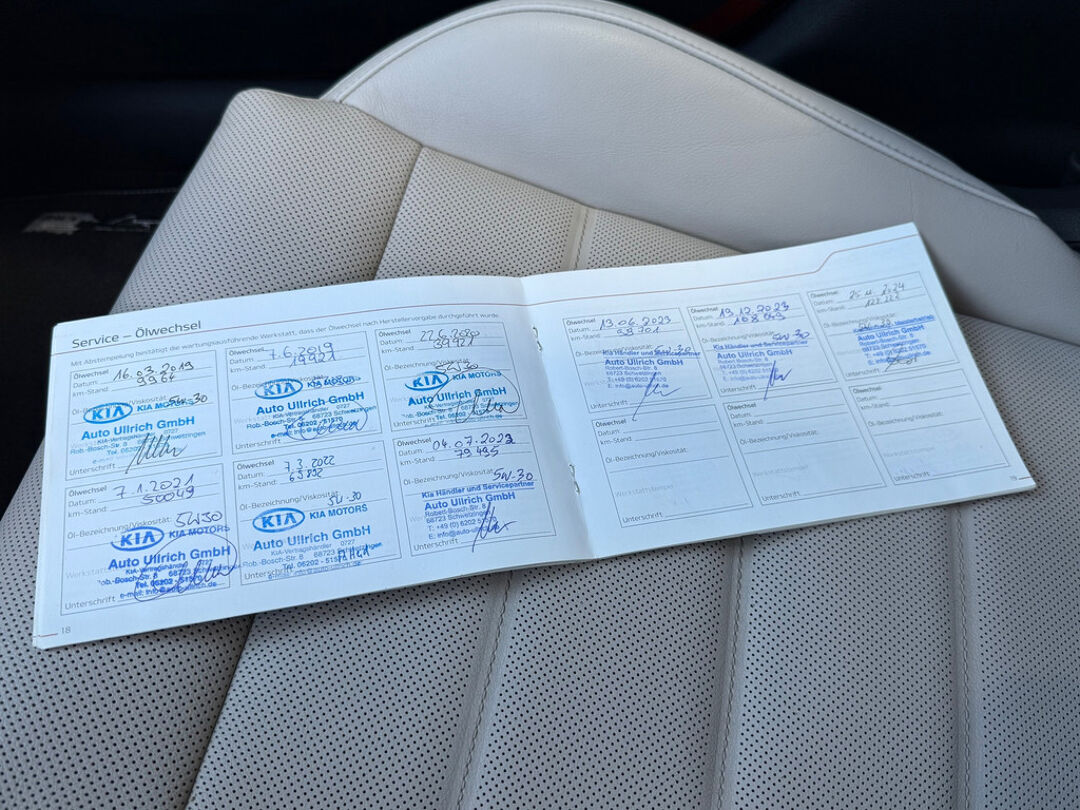 Service – Ölwechsel
Mit Abstempelung bestätigt die wartungsausführende Werkstatt, dass der Ölwechsel nach Herstellervorgabe durchgeführt wurde.
Ölwechsel
Datum: 16.03.2019
km-Stand: 9964
Öl-Bezeichnung/Viskosität: 5W-30
KIA KIA MOTORS
Auto Ullrich GmbH
KIA-Vertragshändler 0727
Rob.-Bosch-Str. 8 68723 Schwetzingen
Tel. 06202 - 51570
Unterschrift
Ölwechsel
Datum: 7.6.2019
km-Stand: 19921
KIA KIA MOTORS
Auto Ullrich GmbH
KIA-Vertragshändler 0727
Rob.-Bosch-Str. 8 68723 Schwetzingen
Tel. 06202 - 51570
Unterschrift
Ölwechsel
Datum: 22.6.2020
km-Stand: 39921
5W30
KIA KIA MOTORS
Auto Ullrich GmbH
Unterschrift
Ölwechsel
Datum: 7.1.2021
km-Stand: 50049
Öl-Bezeichnung/Viskosität: 5W30
KIA KIA MOTORS
Auto Ullrich GmbH
KIA-Vertragshändler 0727
Rob.-Bosch-Str. 8 68723 Schwetzingen
Tel. 06202 - 51570
Unterschrift e-mail: info@auto-ullrich.de
Ölwechsel
Datum: 7.3.2022
km-Stand: 63892
Öl-Bezeichnung/Viskosität: 5W-30
KIA KIA MOTORS
Auto Ullrich GmbH
KIA-Vertragshändler 0727
Rob.-Bosch-Str. 8 68723 Schwetzingen
Tel. 06202 - 51570
Unterschrift e-mail: info@auto-ullrich.de
Ölwechsel
Datum: 04.07.2022
km-Stand: 79495
Öl-Bezeichnung/Viskosität: 5W-30
Kia Händler und Servicepartner
Auto Ullrich GmbH
Robert-Bosch-Str. 8
68723 Schwetzingen
T: +49 (0) 6202 51570
E: info@auto-ullrich.de
Unterschrift
18
Ölwechsel
Datum: 13.06.2023
km-Stand: 99701
Öl-Bezeichnung/Viskosität: 5W-30
Kia Händler und Servicepartner
Auto Ullrich GmbH
Robert-Bosch-Str. 8
68723 Schwetzingen
T: +49 (0) 6202 51570
E: info@auto-ullrich.de
Unterschrift
Ölwechsel
Datum: 13.12.2023
km-Stand: 108843
5W-30
Kia Händler und Servicepartner
Auto Ullrich GmbH
Robert-Bosch-Str. 8
68723 Schwetzingen
T: +49 (0) 6202 51570
E: info@auto-ullrich.de
Unterschrift
Ölwechsel
Datum:
km-Stand:
Auto Ullrich GmbH
Robert-Bosch-Str. 8
68723 Schwetzingen
T: +49 (0) 6202 51570
Unterschrift
Ölwechsel
Datum:
km-Stand
Öl-Bezeichnung/Viskosität:
Werkstattstempel
Unterschrift
Ölwechsel
Datum:
km-Stand
Öl-Bezeichnung/Viskosität:
Werkstattstempel
Unterschrift
Ölwechsel
Datum:
km-Stand
Öl-Bezeichnung/Viskosität:
Werkstattstempel
Unterschrift
19